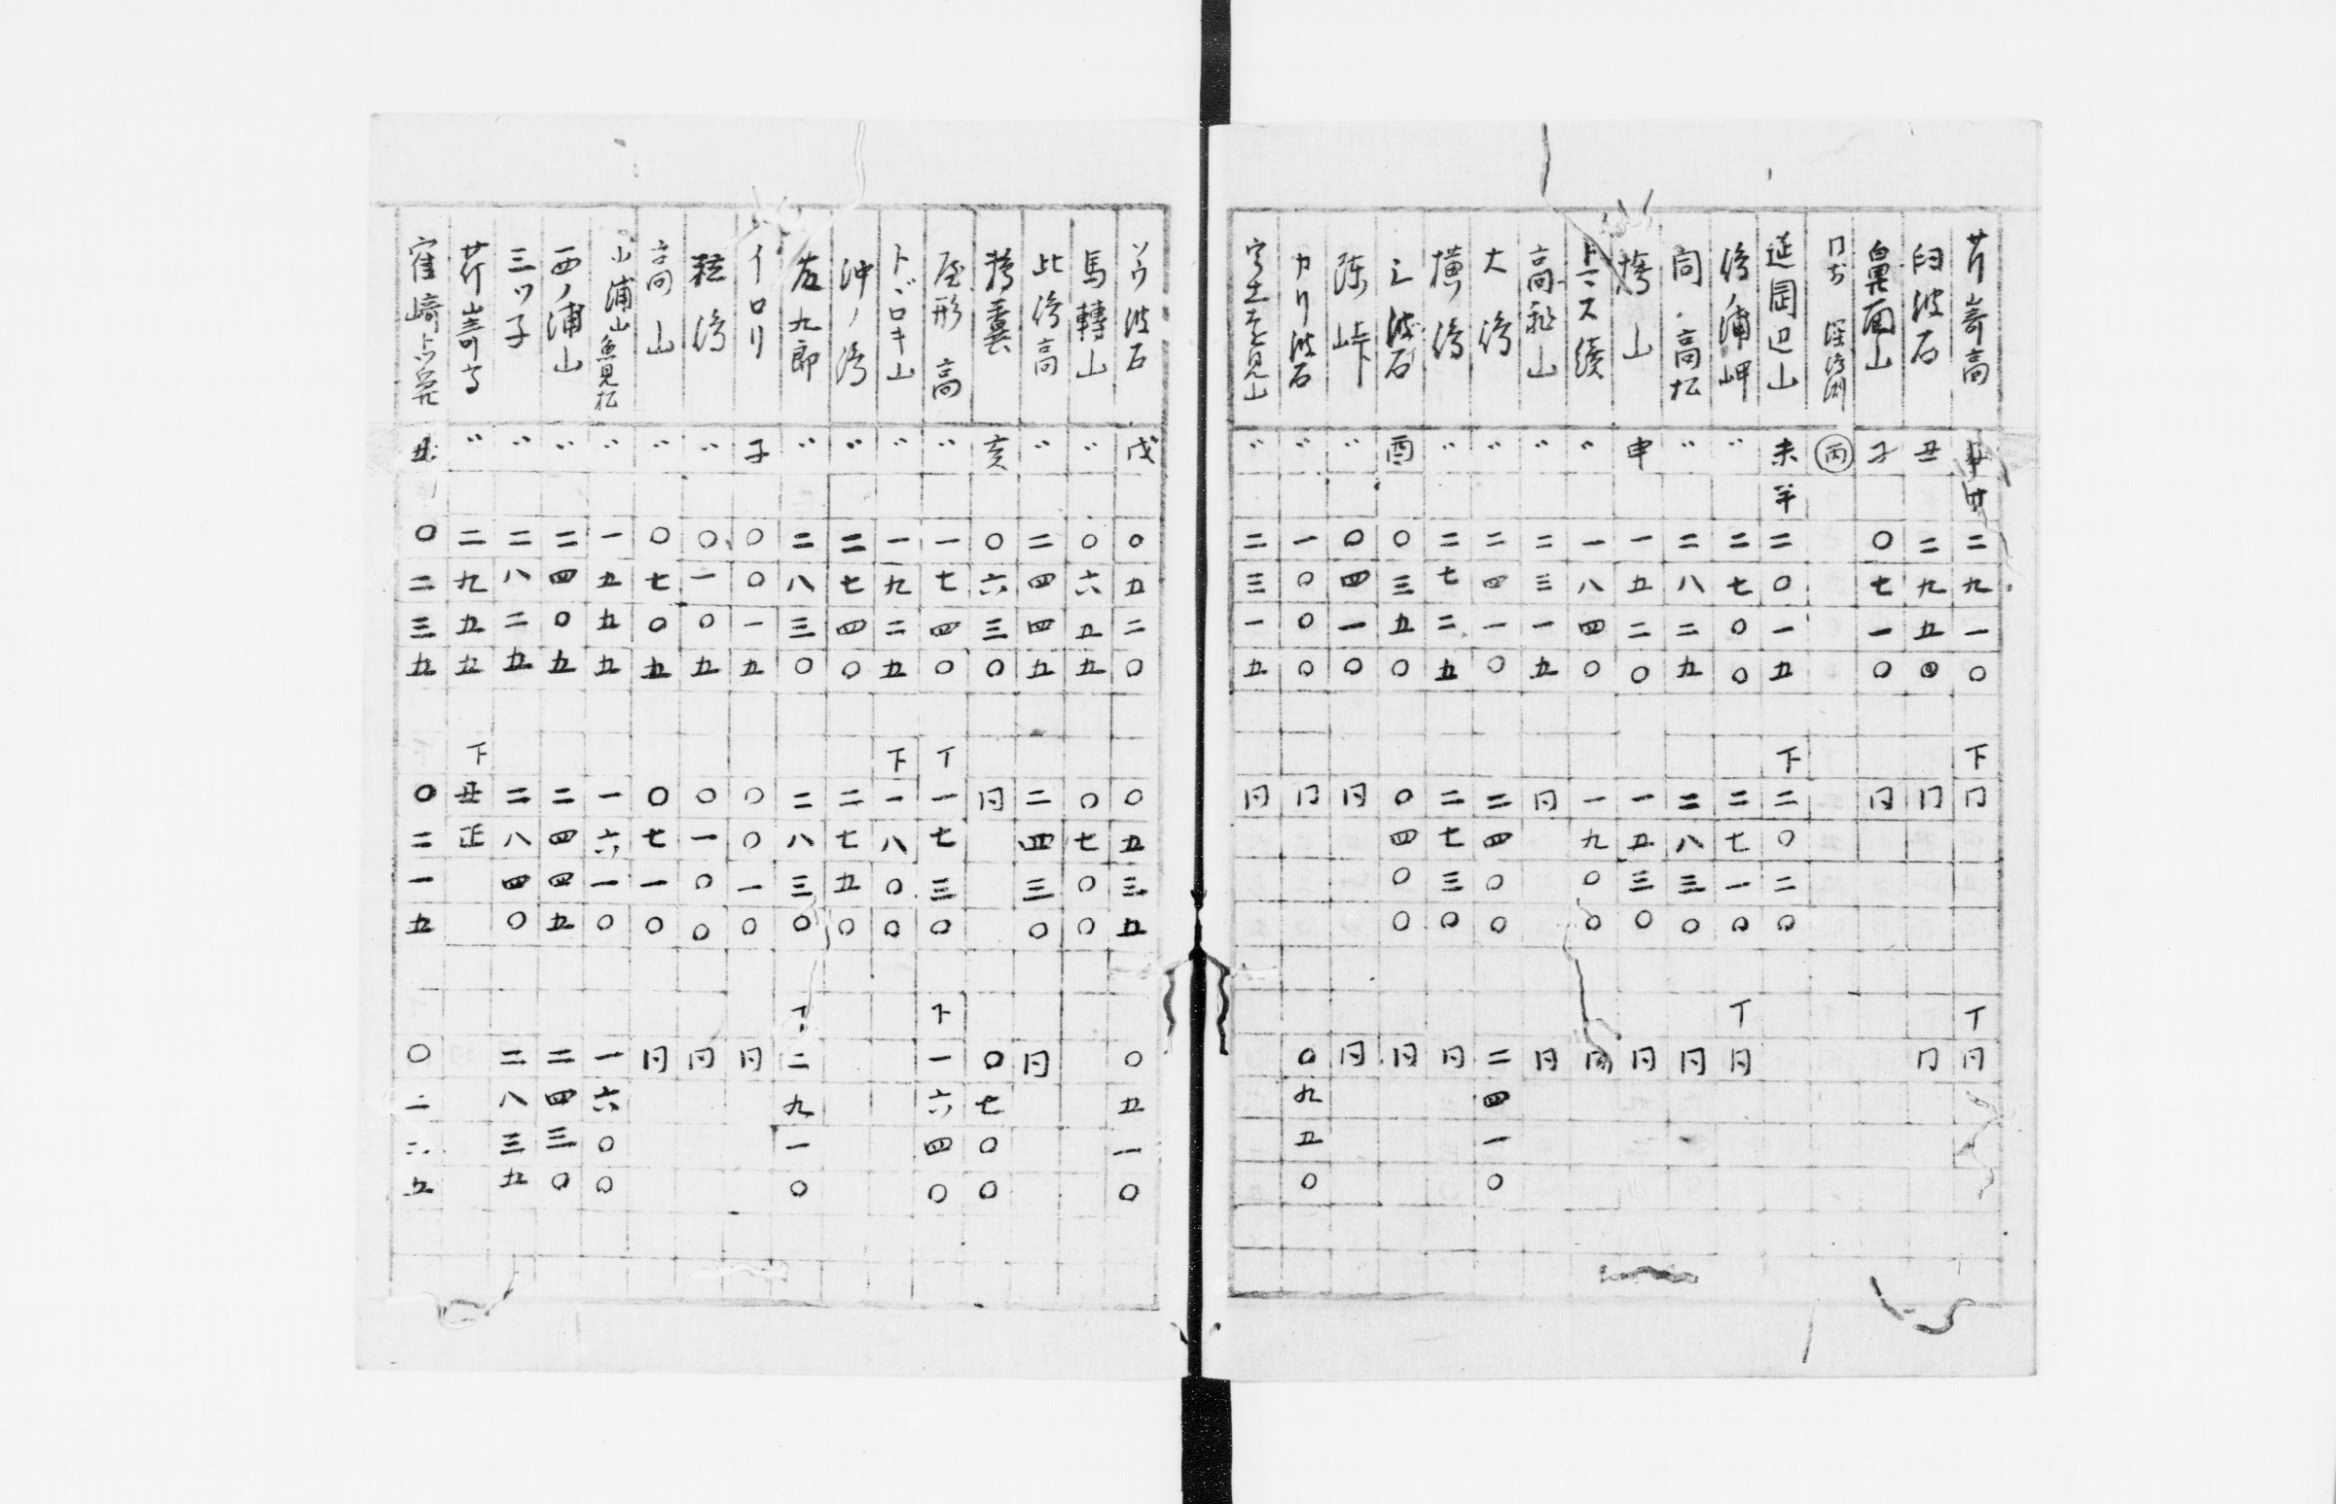 芹嵜高 丑 二九一〇 下 同 下 同
臼波石 丑 二九五〇 同 同
鼻面山 子 〇七一〇 同
同所 深浮 丙
延岡辺山 未 半 二〇一五 下 二〇二〇
浮ノ浦岬 〃 二七〇〇 二七一〇 下 同
同・高松 〃 二八二五 二八三〇 同
山 申 一五二〇 一五三〇 同
〃 一八四〇 一九〇〇 同
高 山 〃 二三一五 同 同
大浮 〃 二四一〇 二四〇〇 二四一〇
横浮 〃 二七二五 二七三〇 同
シ波石 酉 〇三五〇 〇四〇〇 同
陳峠 〃 〇四一〇 同 同
カリ波石 〃 一〇〇〇 同 〇九五〇
見山 〃 二三一五 同
ソウ波石 戌 〇五二〇 〇五三五 〇五一〇
馬轉山 〃 〇六五五 〇七〇〇
此浮高 〃 二四四五 二四三〇 同
亥 〇六三〇 同 〇七〇〇
屋形高 〃 一七四〇 下 一七三〇 下 一六四〇
トドロキ山 〃 一九二五 下 一八〇〇
沖ノ浮 〃 二七四〇 二七五〇
九郎 〃 二八三〇 二八三〇 下 二九一〇
イロリ 子 〇〇一五 〇〇一〇 同
浮 〃 〇一〇五 〇一〇〇 同
高山 〃 〇七〇五 〇七一〇 同
小浦山魚見松 〃 一五五五 一六一〇 一六〇〇
西ノ浦山 〃 二四〇五 二四四五 二四三〇
三ツ子 〃 二八二五 二八四〇 二八三五
芹嵜高 〃 二九五五 下 丑 正
崎 丑 〇二三五 〇二一五 〇二二五